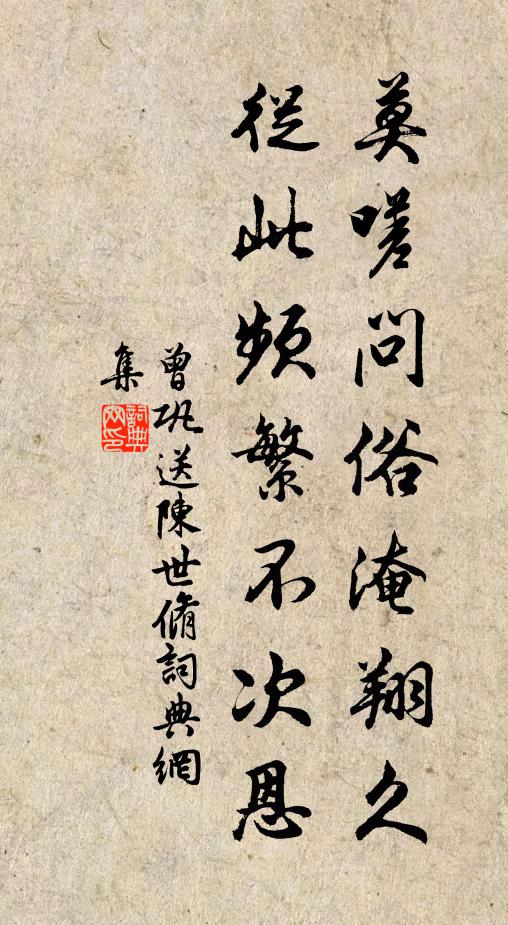 莫嗟問俗淹翔久
從此頻繁不次恩
曾巩送陳世脩詞典網
集
詞典
网印